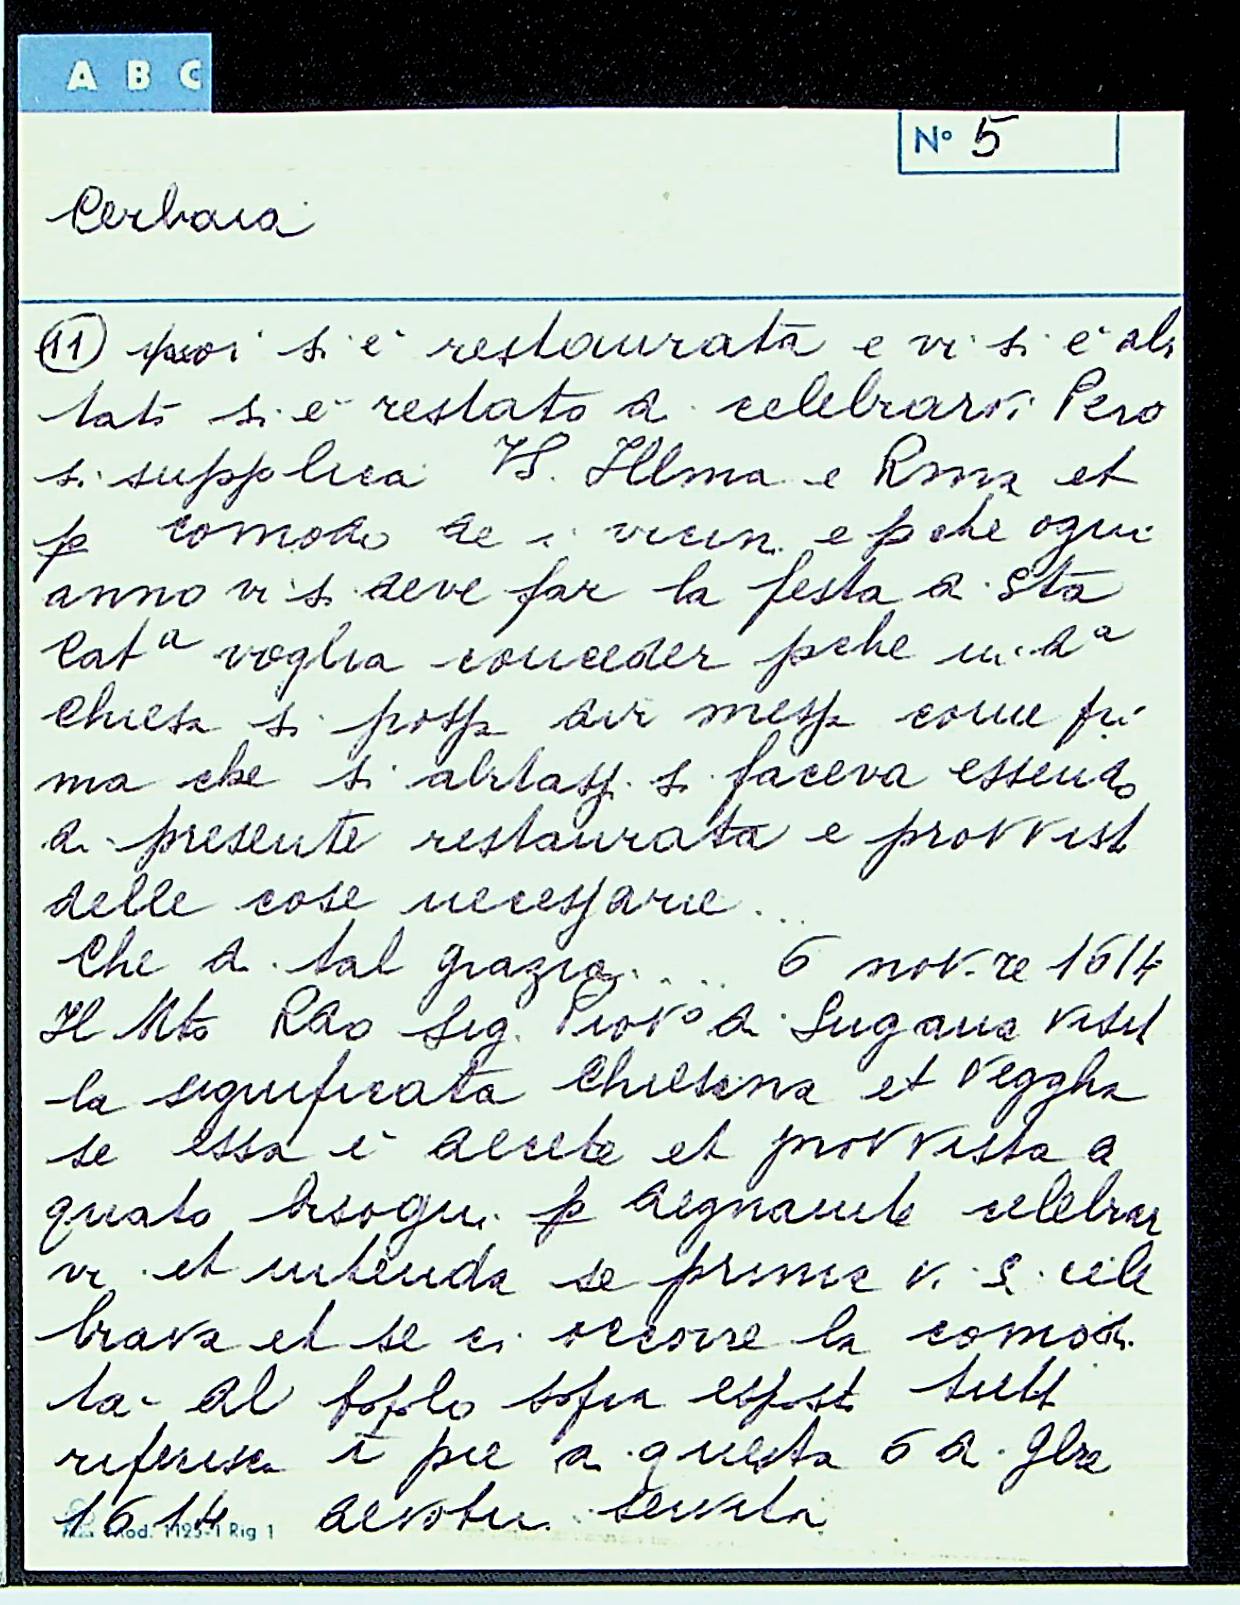 A B C
N° 5
Cerbaia
(11) poi si è restaurata e vi si è abi
tato si è restato di celebrarvi Però
si supplica VS. Illma e Rma et
p comodo de i vicini e pche ogni
anno vi si deve far la festa di Sta
Catª voglia conceder pche in dª
Chiesa si possa dir messa come pri
ma che si abitassi si faceva essendo
di presente restaurata e provvista
delle cose necessarie...
Che di tal grazia.... 6 nov.re 1614
Il Mto Rdo Sig. Piovº di Sugana visiti
la significata Chiesina et Vegghia
se essa è decete et provvista di
quato bisogni p degnamente celebrar
vi et intenda se prima vi si cele
brava et se ci occorre la comodi
tà al popolo sopra esposti tutti
riferisca ī piè di questa 6 di 9bre
1614
Mod. 1125-1 Rig 1